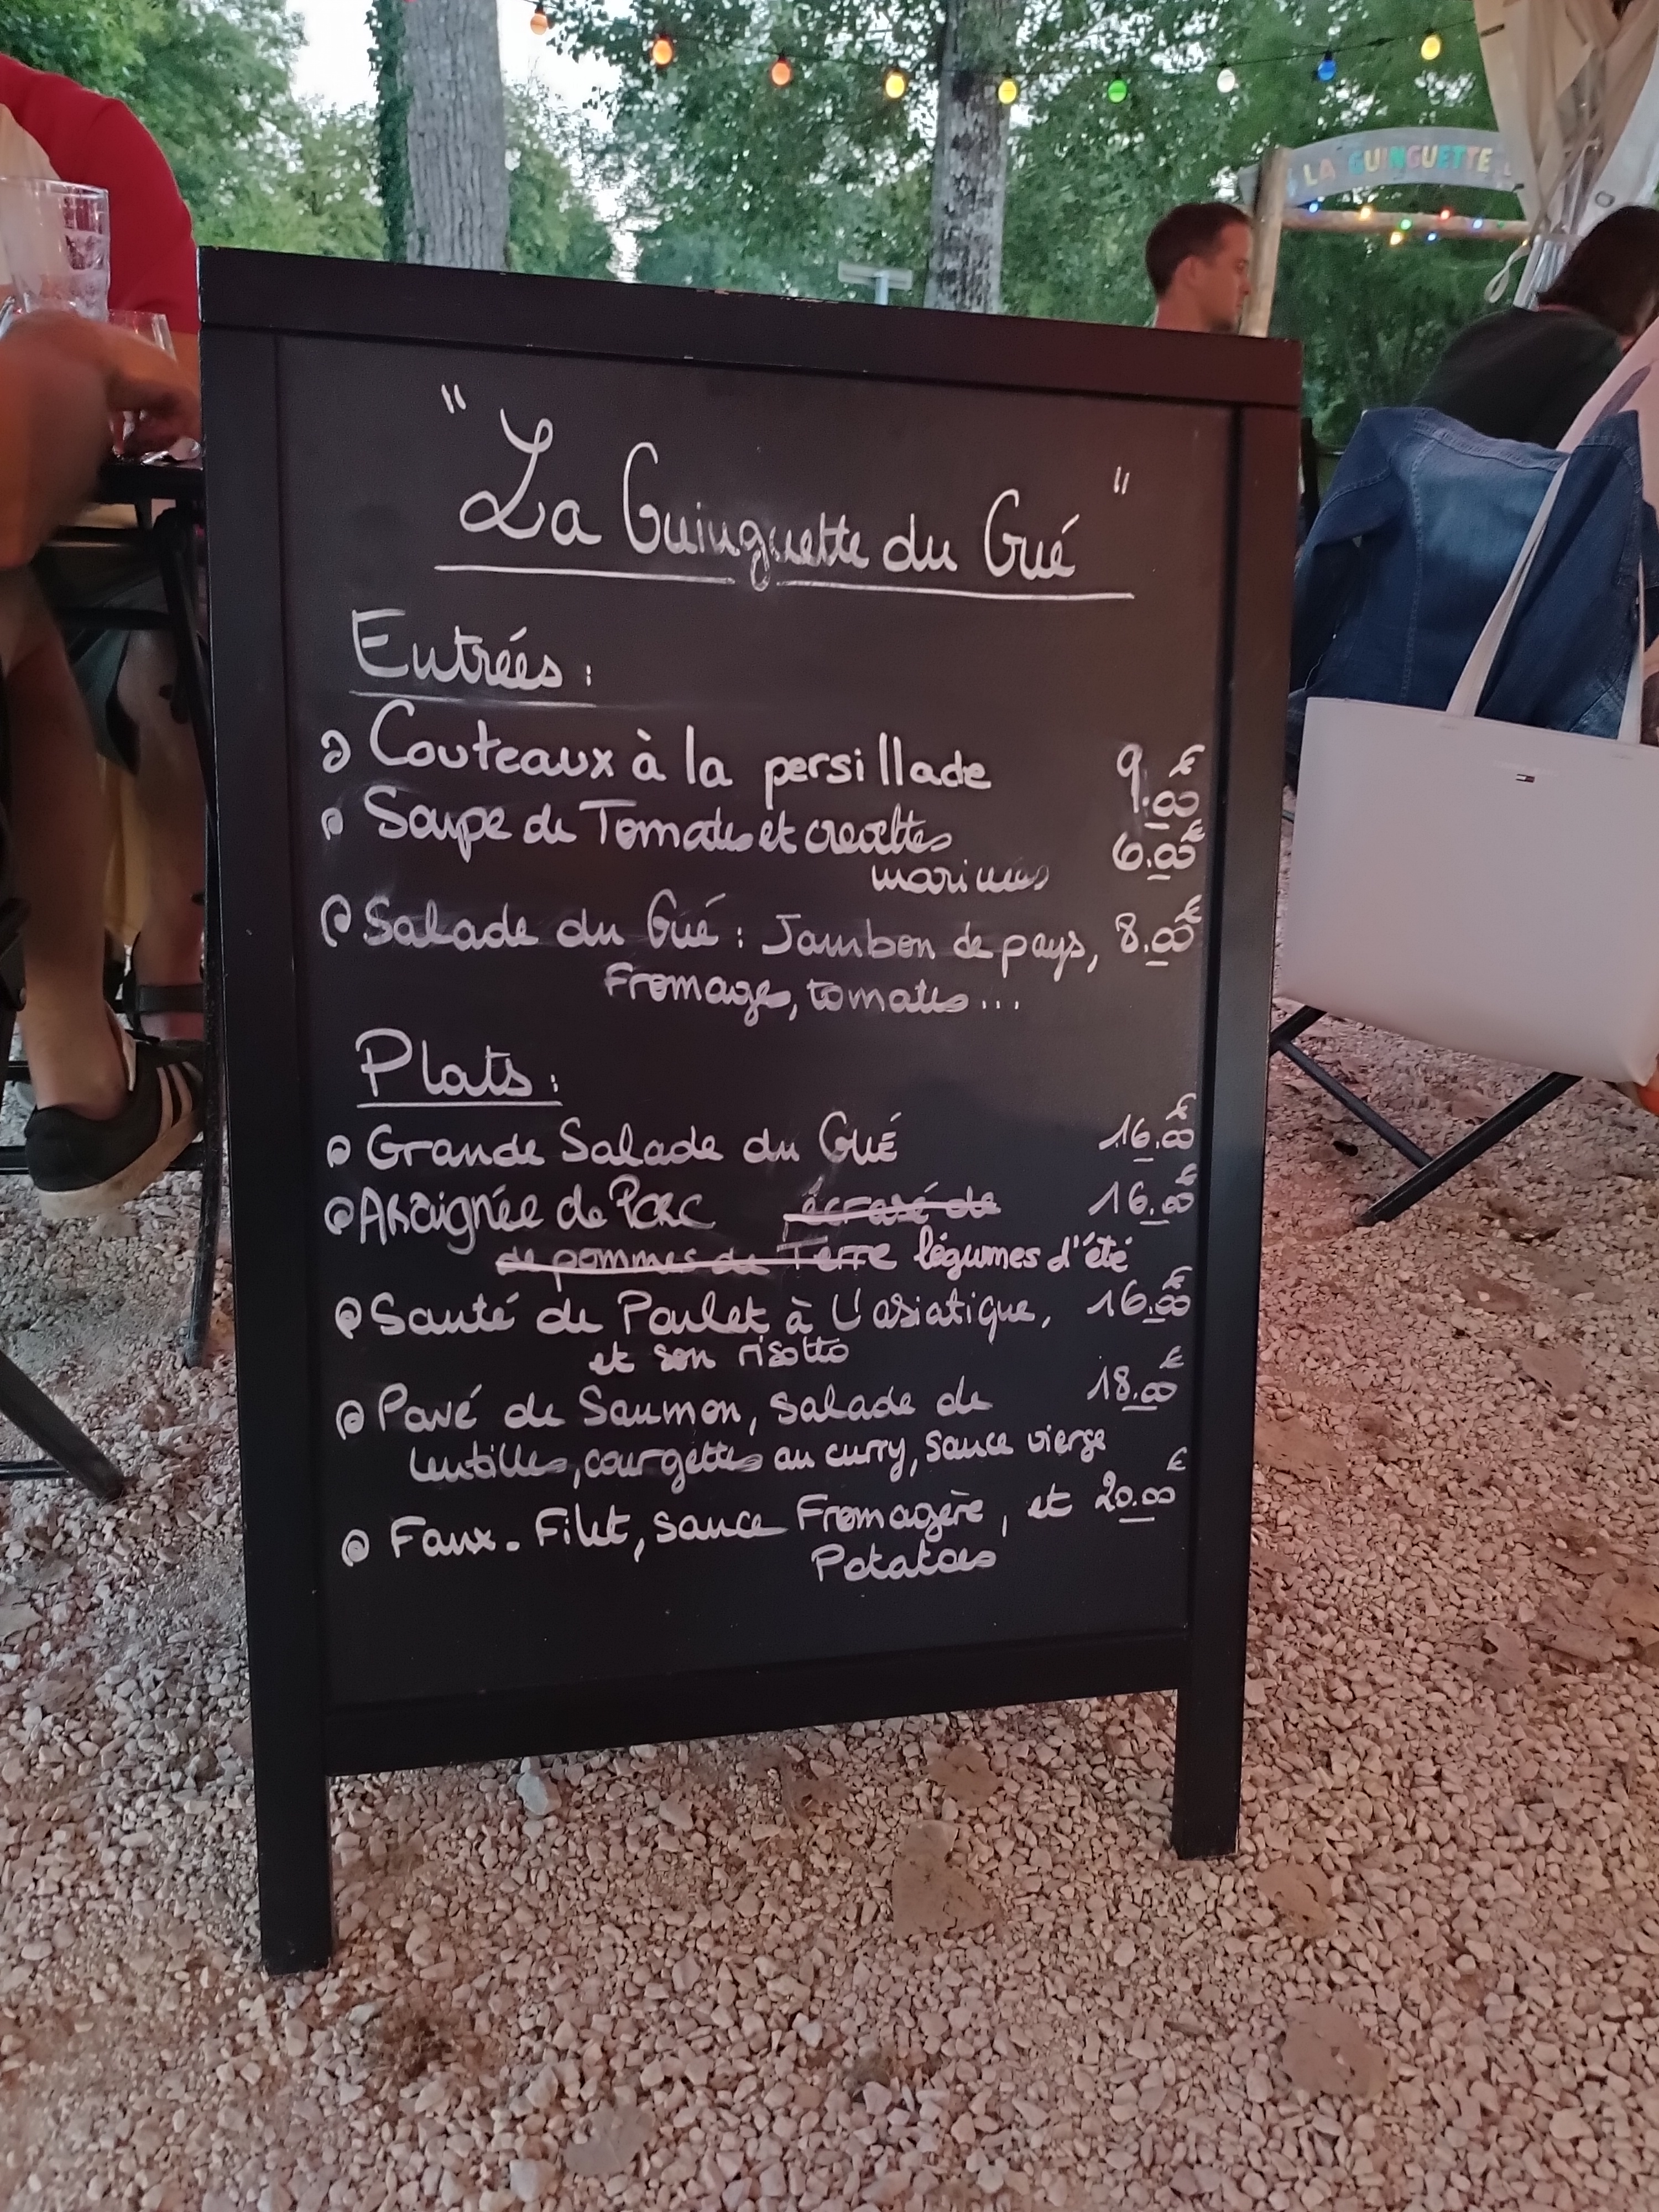 LA GUINGUETTE
"La Guinguette du Gué"
Entrées :
Couteaux à la persillade 9.00€
Soupe de Tomates et crevettes 6.00€
marinées
Salade du Gué : Jambon de pays, 8.00€
Fromage, tomates...
Plats :
Grande Salade du Gué 16.00€
Araignée de Porc écrasé de 16.00€
de pommes de Terre légumes d'été
Sauté de Poulet à L'asiatique, 16.00€
et son risotto
Pavé de Saumon, salade de 18.00€
lentilles, courgettes au curry, sauce vierge
Faux-Filet, sauce Fromagère, et 20.00€
Potatoes